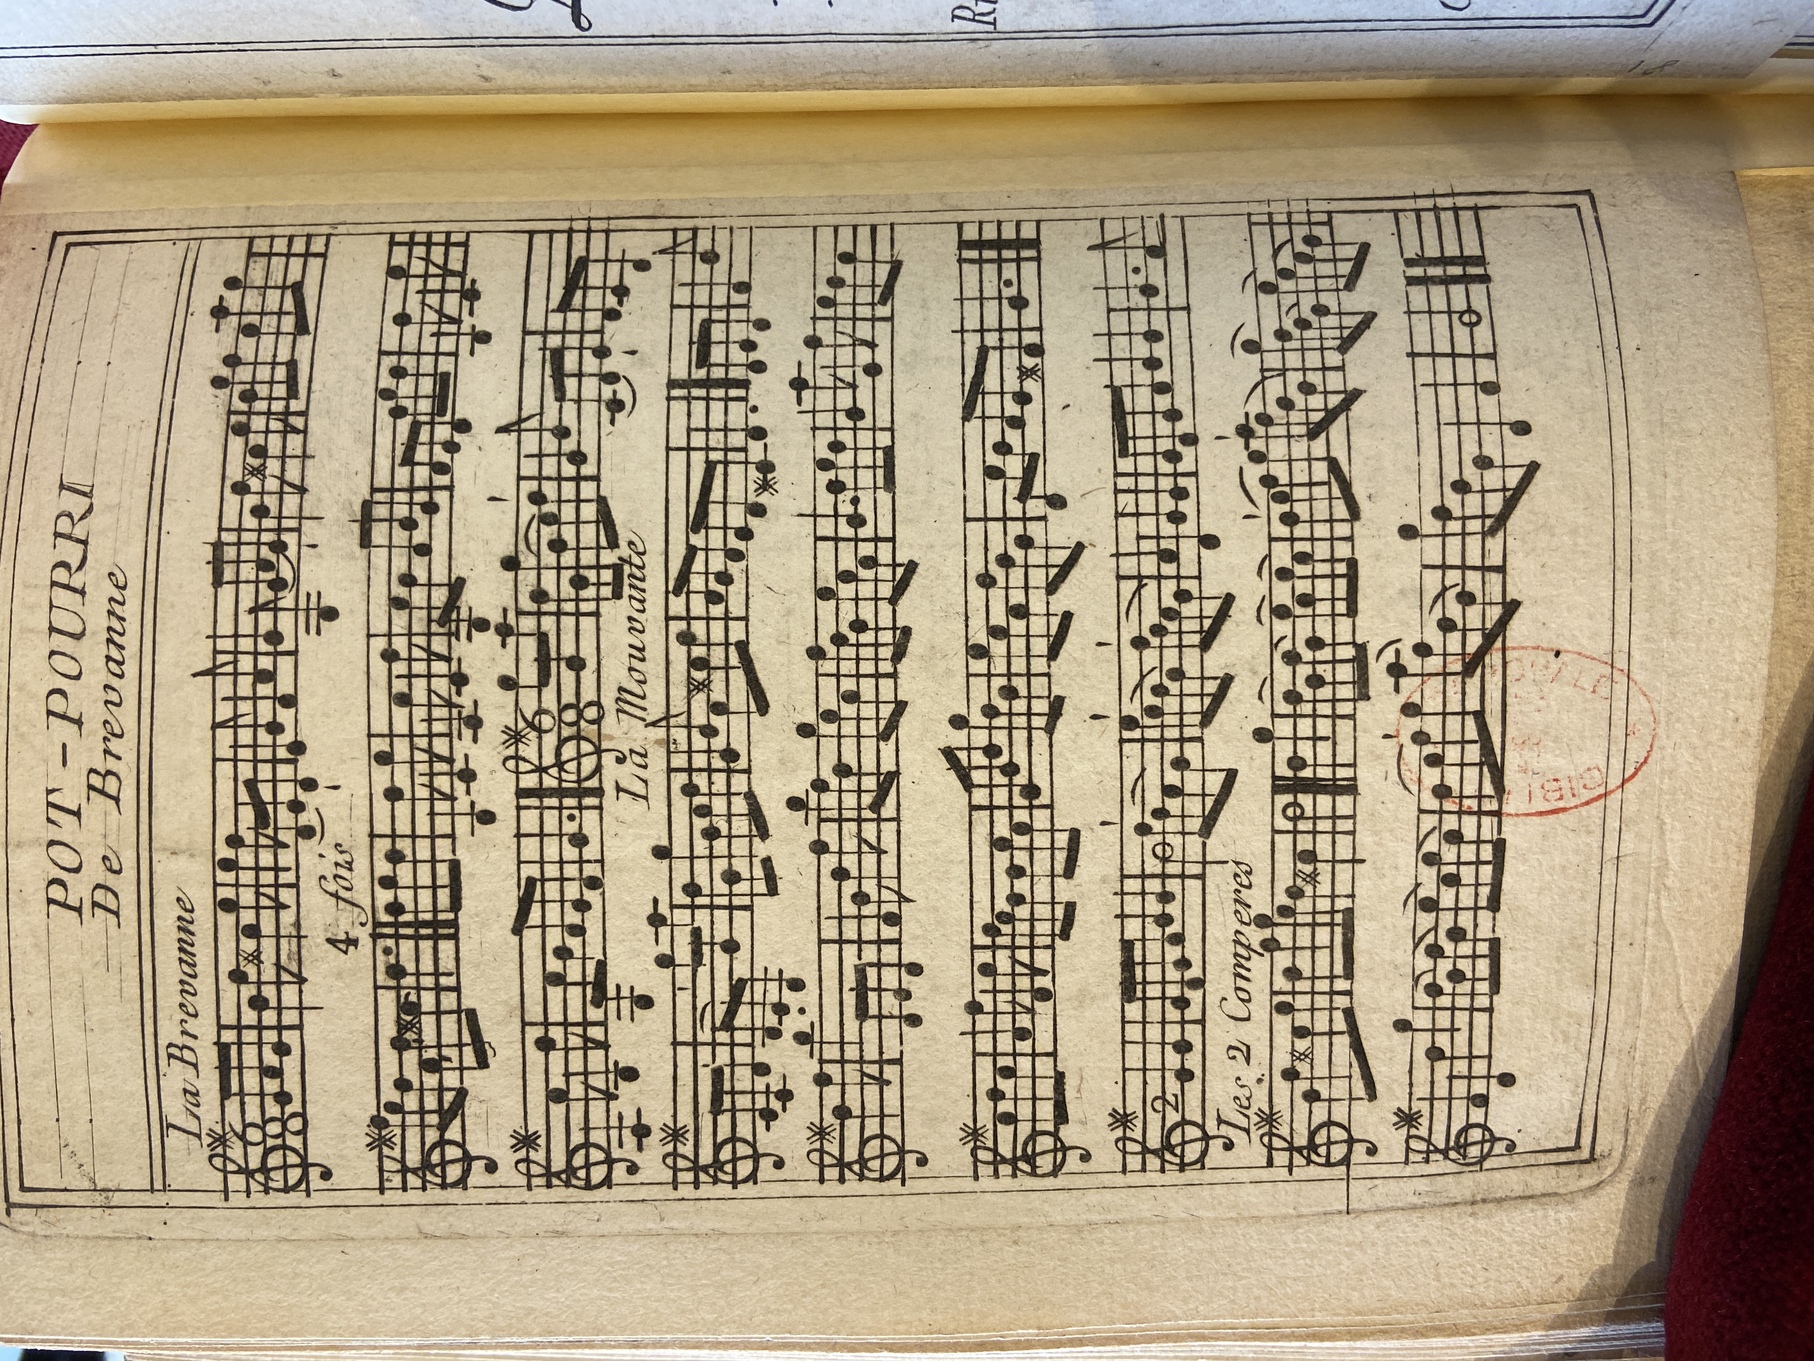 POT-POURRI
De Brevanne
La Brevanne
6
8
4 fois
6
8
La Mouvante
2
Les 2 Comperes
BIBL